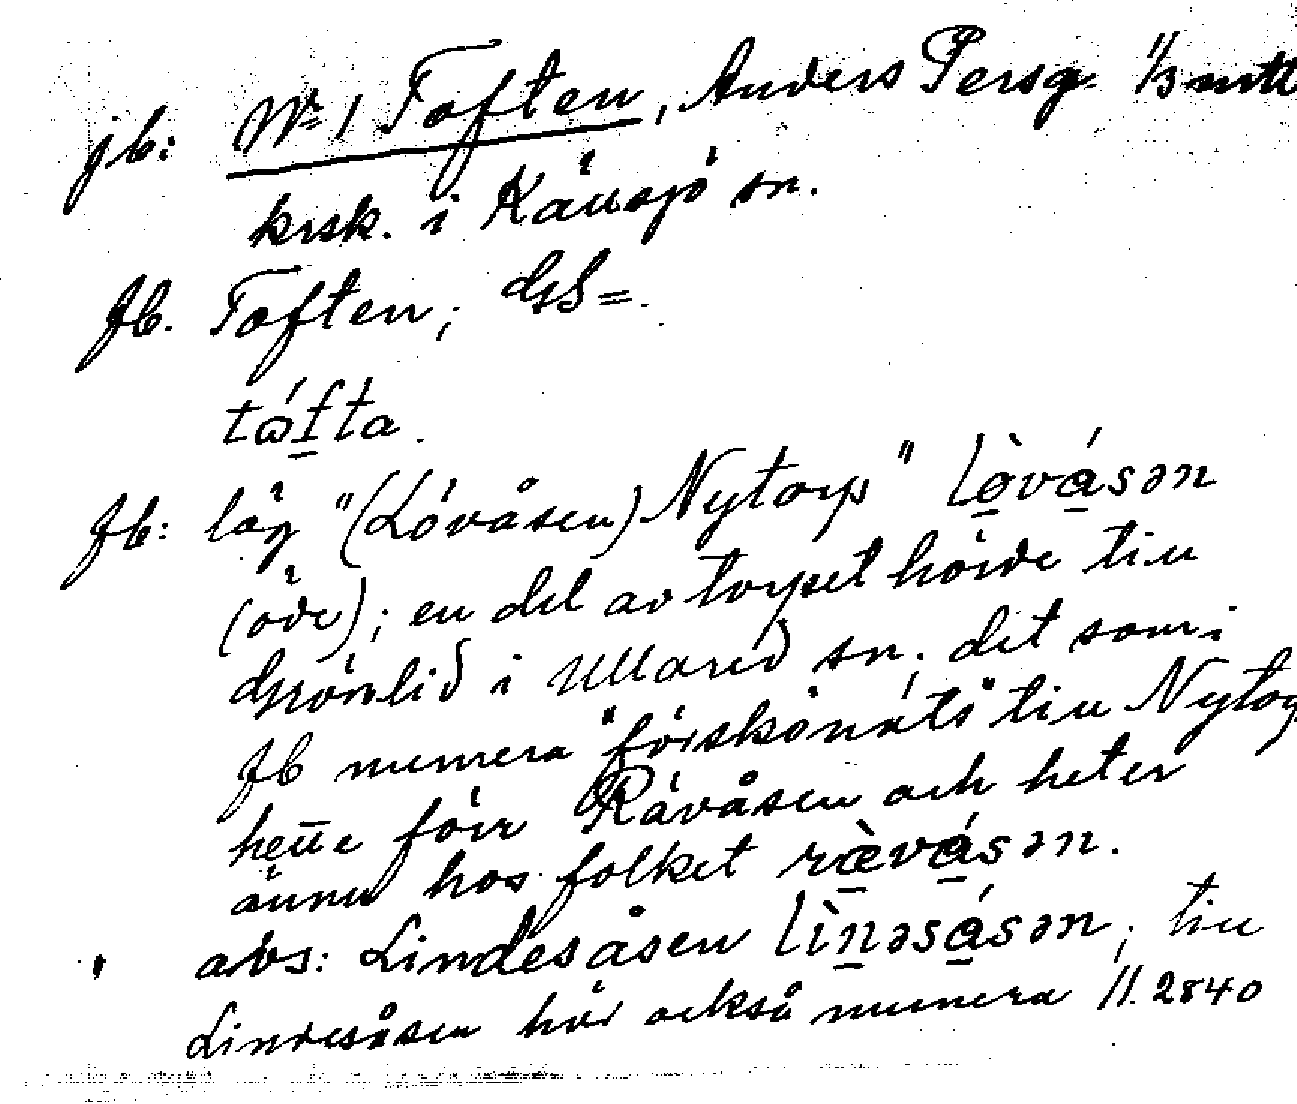 jb: Nr 1 Toften, Anders Persg. 1/3 mtl
krsk. i Källsjö sn.
Jb. Toften; GS=.
tófta.
Jb: låg "(Lövåsen) Nytorp" lòvásən
(öde); en del av torpet hörde till
Grönlid i Ullared sn; det som i
Jb numera till Nytorp
hette förr Rävåsen och heter
ännu hos folket rævásən.
avs: Lindesåsen lìnəsásən; till
Lindesåsen hör också numera 11.2840